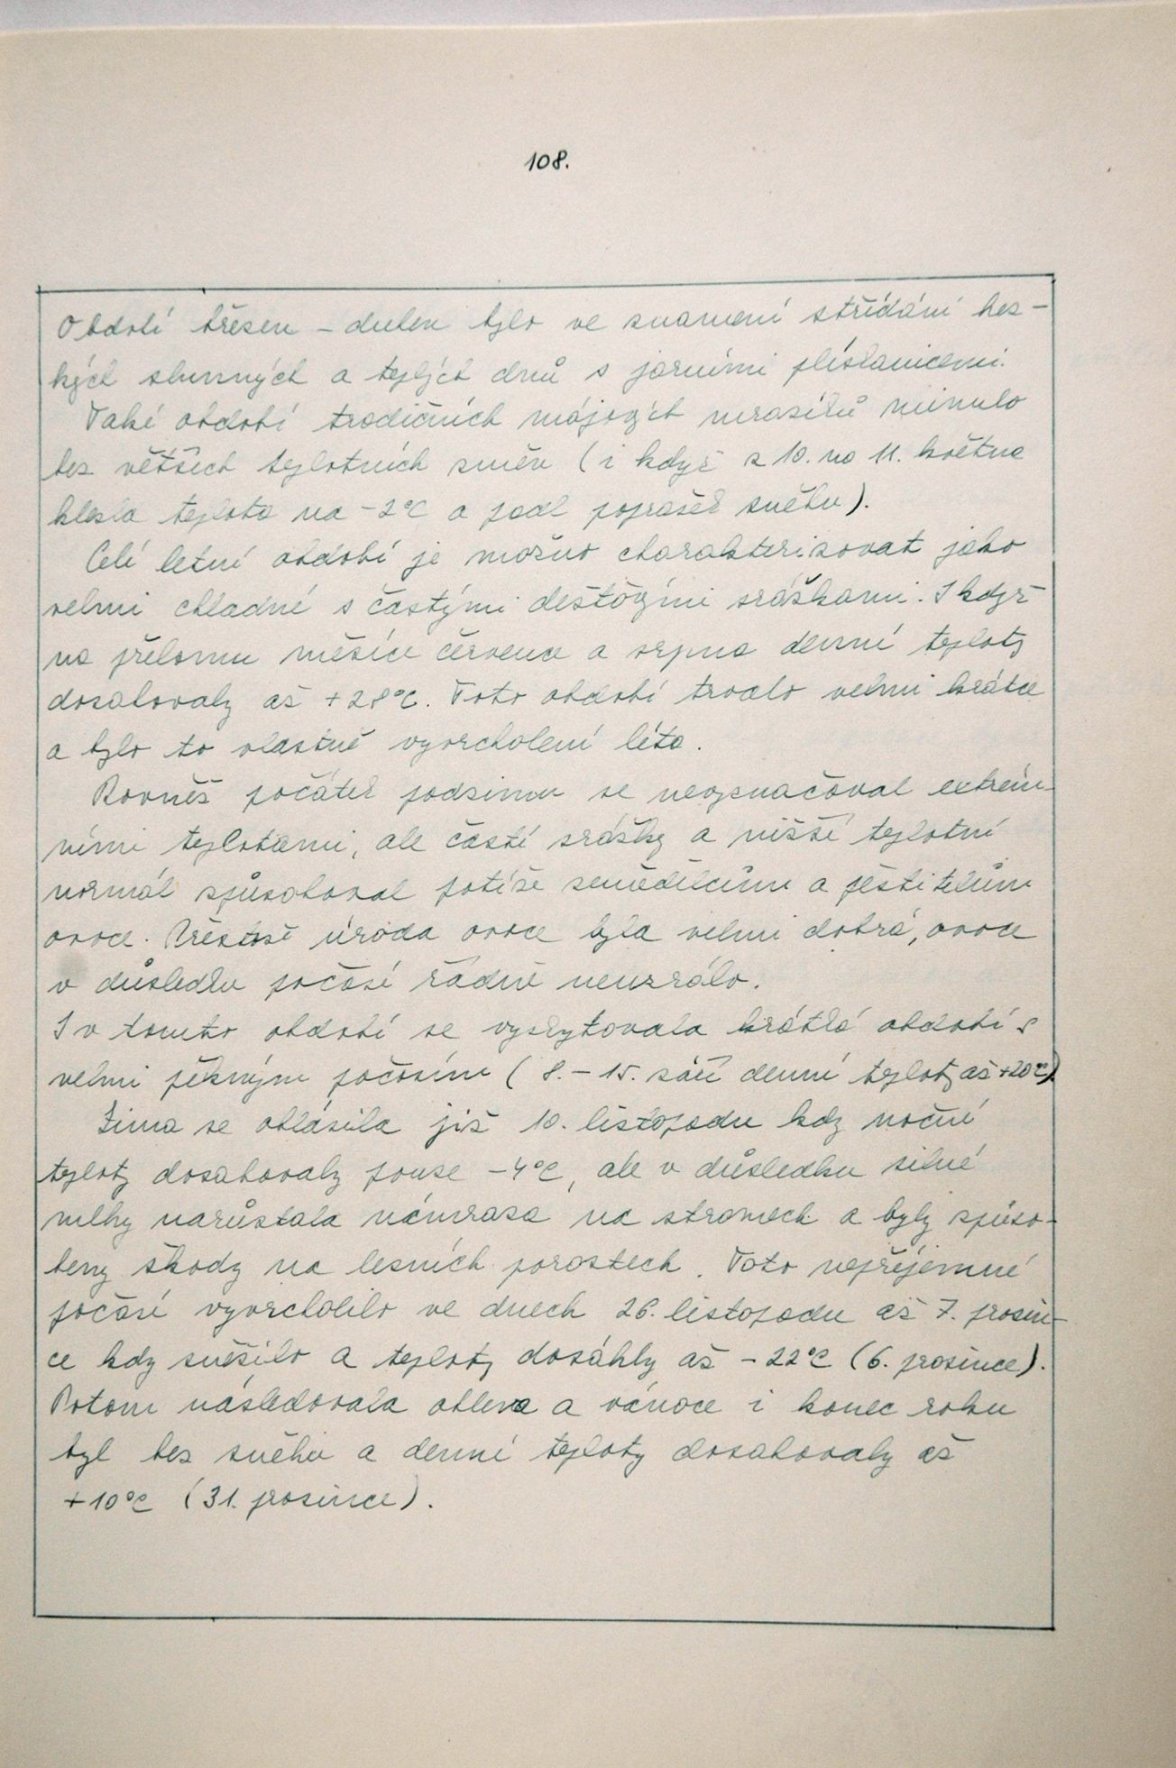 108.
Období březen – duben bylo ve znamení střídání hez-
kých slunných a teplých dnů s jarními plískanicemi.
Také období tradičních májových mrazíků minulo
bez větších teplotních změn (i když z 10. na 11. května
klesla teplota na -2°C a padl poprašek sněhu).
Celé letní období je možno charakterizovat jako
velmi chladné s častými dešťovými srážkami. I když
na přelomu měsíce července a srpna denní teploty
dosahovaly až +28°C. Toto období trvalo velmi krátce
a bylo to vlastně vyvrcholení léta.
Rovněž počátek podzimu se nevyznačoval extrém-
ními teplotami, ale časté srážky a nižší teplotní
normál způsoboval potíže zemědělcům a pěstitelům
ovoce. Přestože úroda ovoce byla velmi dobrá, ovoce
v důsledku počasí řádně neuzrálo.
I v tomto období se vyskytovala krátká období s
velmi pěkným počasím (8. – 15. září denní teploty až +20°C)
Zima se ohlásila již 10. listopadu kdy noční
teploty dosahovaly pouze -4°C, ale v důsledku silné
mlhy narůstala námraza na stromech a byly způso-
beny škody na lesních porostech. Toto nepříjemné
počasí vyvrcholilo ve dnech 26. listopadu až 7. prosin-
ce kdy sněžilo a teploty dosáhly až -22°C (6. prosince).
Potom následovala obleva a vánoce i konec roku
byl bez sněhu a denní teploty dosahovaly až
+10°C (31. prosince).